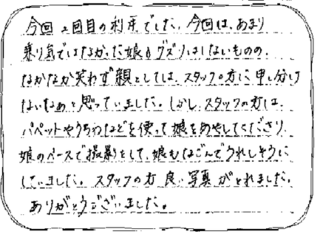 今回2回目の利用でした。今回は、あまり
乗り気ではなかった娘もグズりはしないものの、
なかなか笑わず親としては、スタッフの方に申し分け
ないなぁと思っていました。しかし、スタッフの方は、
パペットやうちわなどを使って娘をあやしてくださり、
娘のペースで撮影をして、娘もなごんでうれしそうに
していました。スタッフの方 良い写真がとれました。
ありがとうございました。